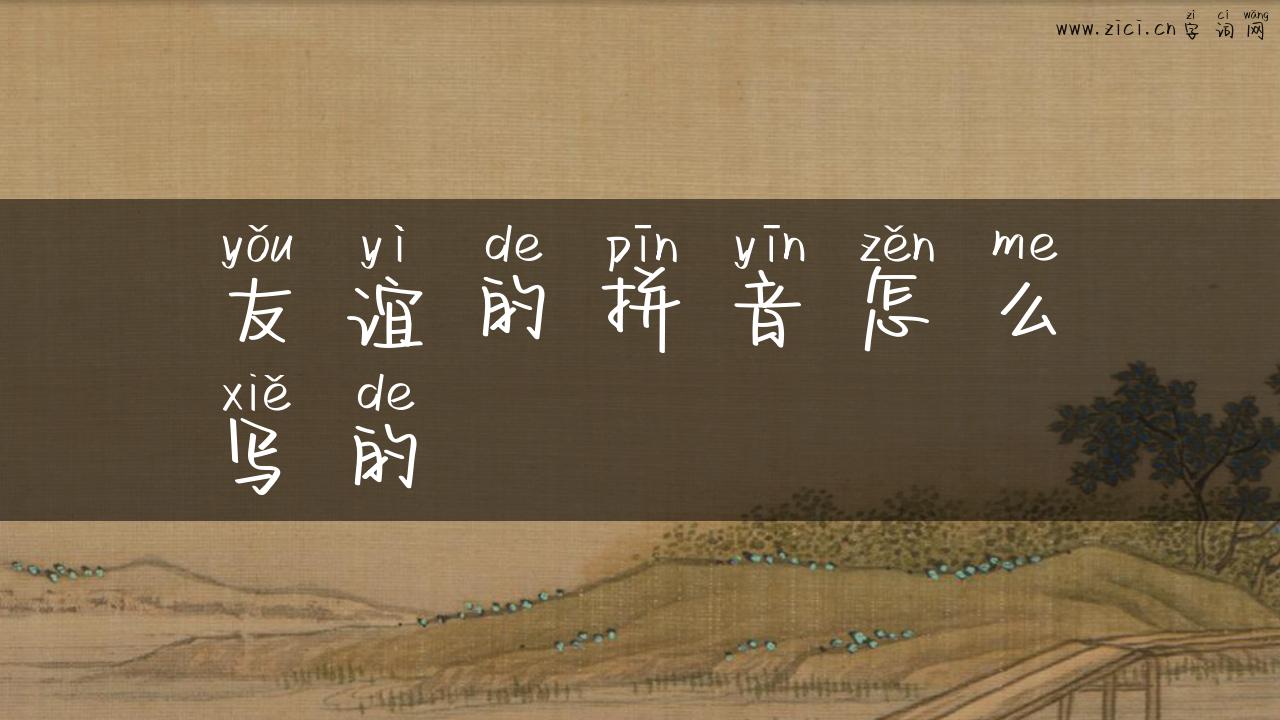 zì cí wǎng
www.zici.cn 字词网
yǒu yì de pīn yīn zěn me
友谊的拼音怎么
xiě de
写的